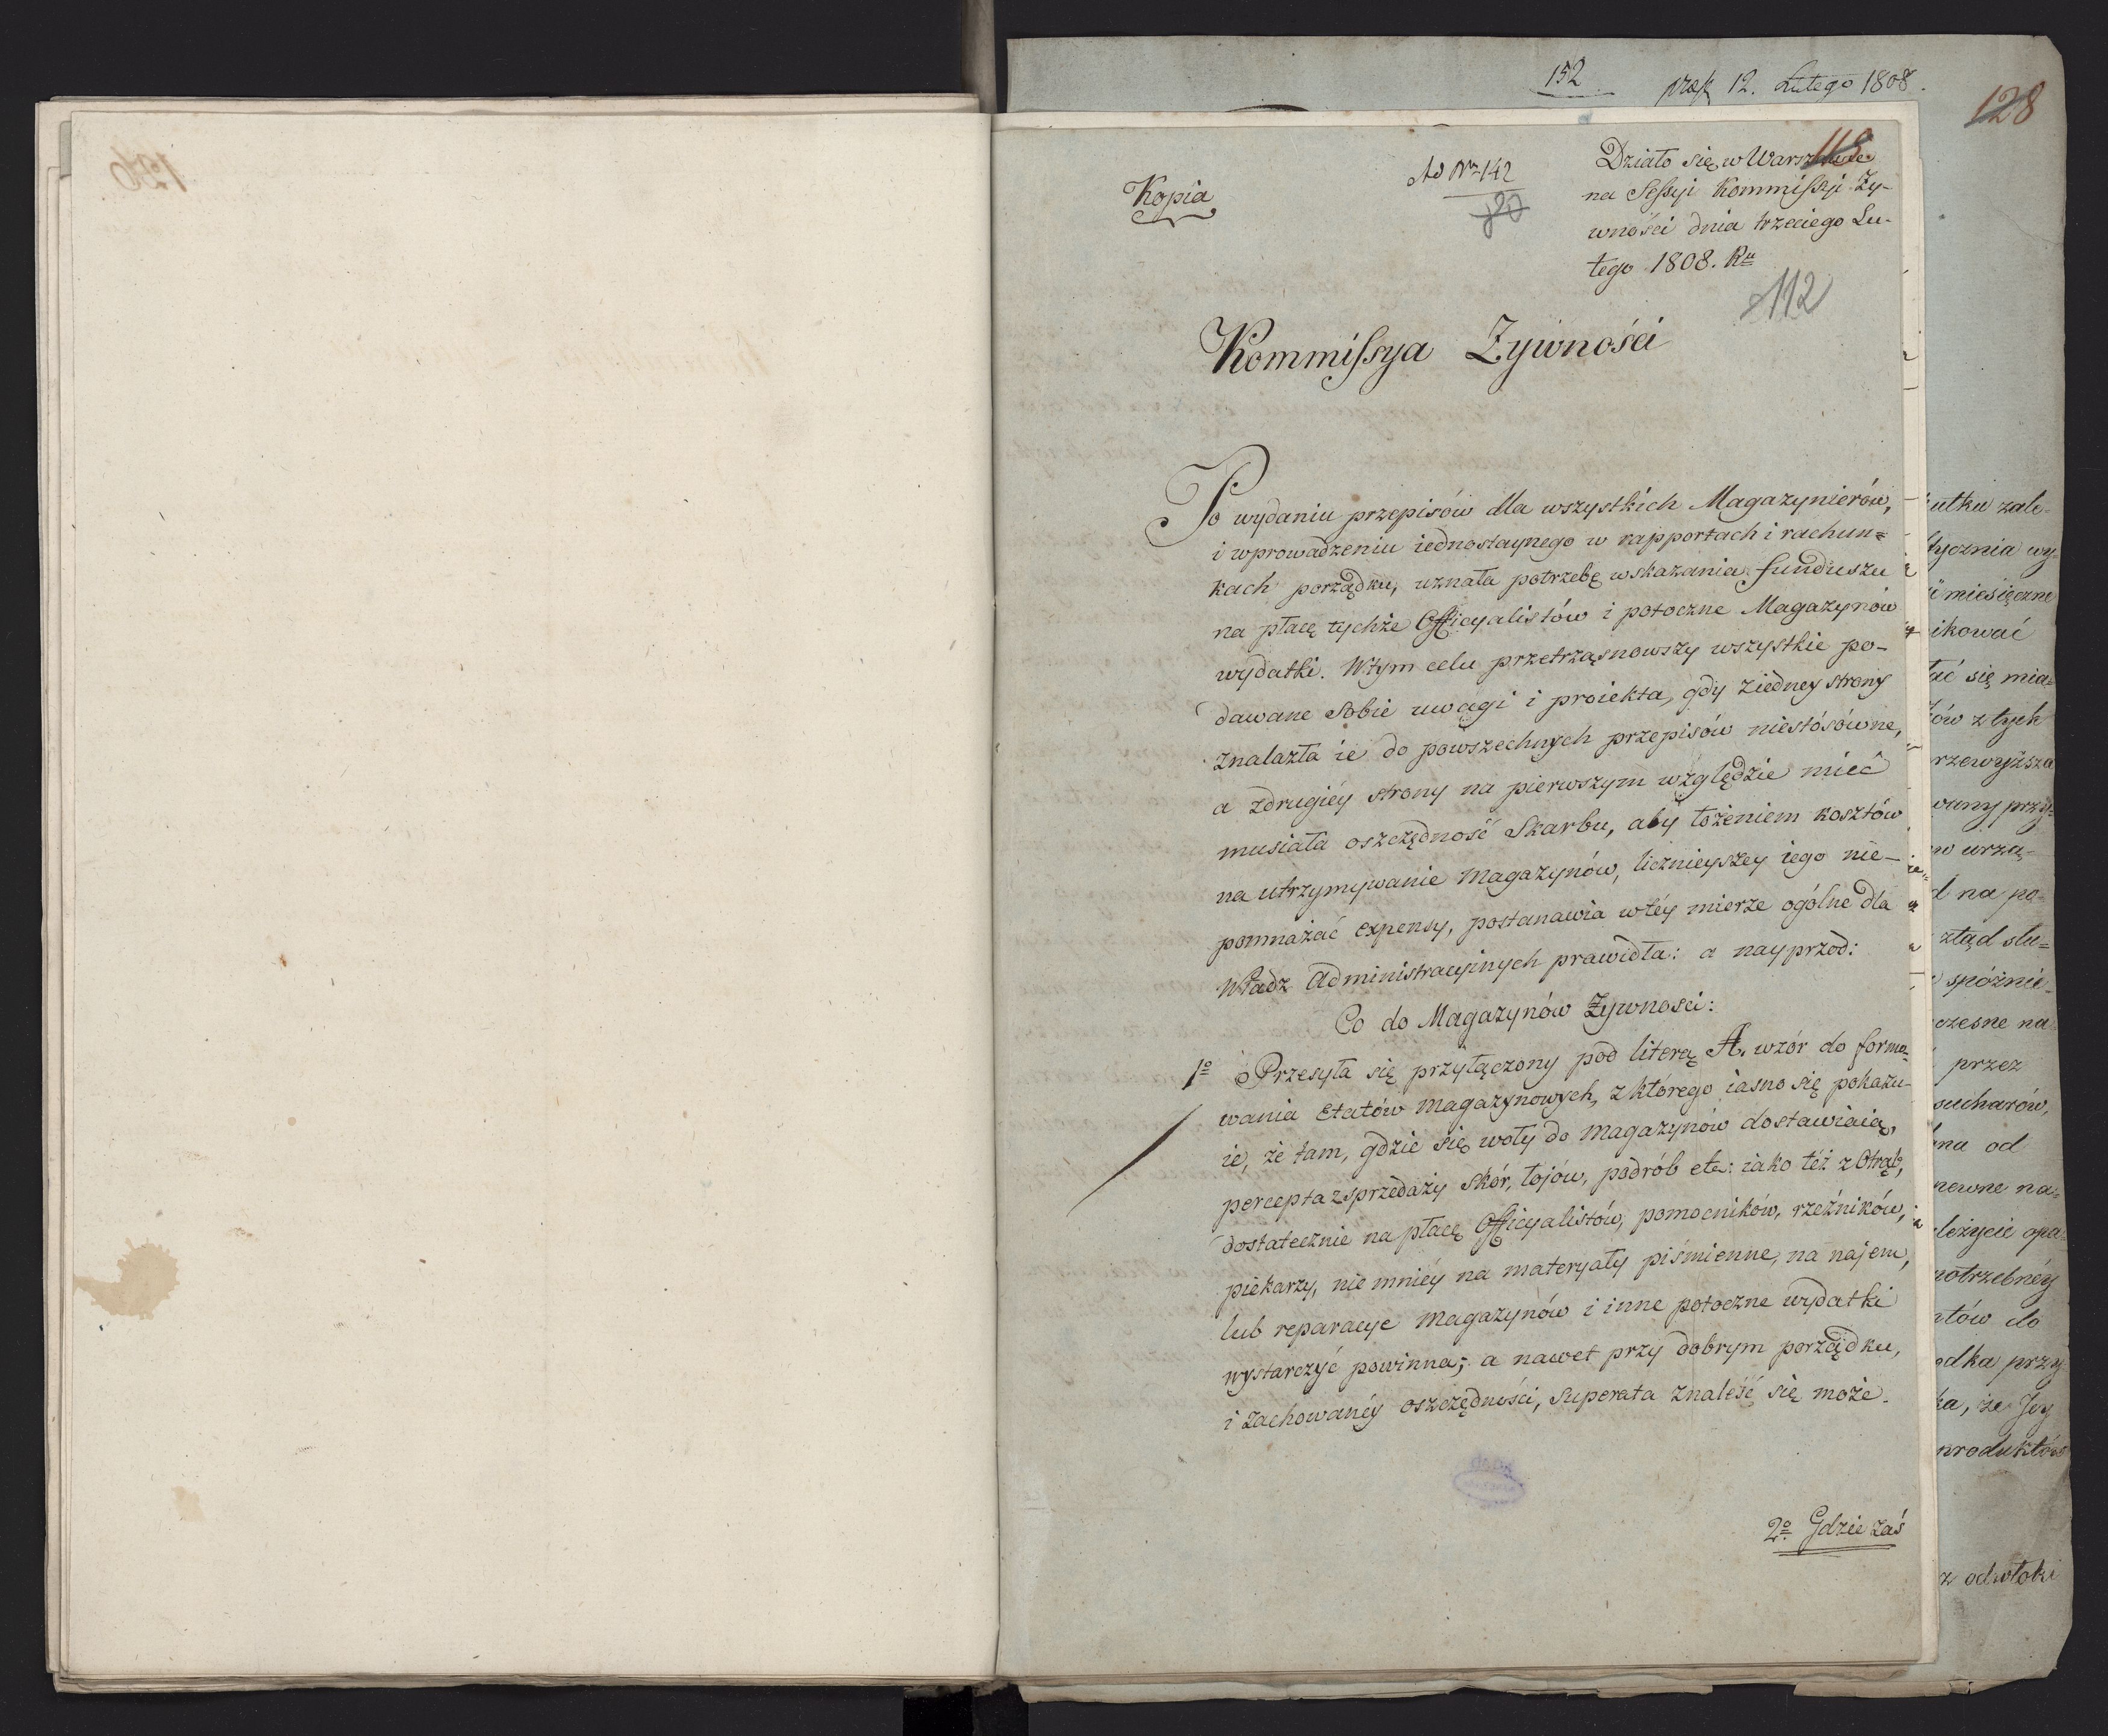 152
12. Lutego 1808.
128
Kopia
Ad Nr 142
Działo się w Warszawie
na Seſsyi Kommiſsyi Ży-
wności dnia trzeciego Lu-
tego 1808. Ru
112
Kommiſsya Zywności
Po wydaniu przepisów dla wszystkich Magazynierów,
i wprowadzeniu iednostaynego w rapportach i rachun=
kach porządku, uznała potrzebę wskazania funduszu
na płacę tychże Officyalistów i potoczne Magazynów
wydatki. W tym celu przetrząsnowszy wszystkie po-
dawane sobie uwagi i proiekta, gdy z iedney strony
znalazła ie do powszechnych przepisów niestósówne,
a z drugiéy strony na pierwszym względzie mieć
musiała oszczędność Skarbu, aby łożeniem kosztów
na utrzymywanie Magazynów, licznieyszey iego nie-
pomnażać expensy, postanawia w téy mierze ogólne dla
Władz Administracyinych prawidła: a nayprzod:
Co do Magazynów Zywnosci:
1o Przesyła się przyłączony pod literą A. wzór do formo-
wania Etatów Magazynowych, z którego iasno się pokazu-
ie, że tam, gdzie się woły do Magazynów dostawiaią,
percepta z sprzedaży Skór, łojów, podrób etc: iako też z Otrąb,
dostatecznie na płacę Officyalistów, pomocników, rzeźników,
piekarzy, nie mniéy na materyały piśmienne, na najem,
lub reparacye Magazynów i inne potoczne wydatki
wystarczyć powinna; a nawet przy dobrym porządku,
i zachowanéy oszczędności, superata znaleść się może.
2o Gdzie zaś
utku zale=
tycznia wy=
miesięczne
ikować
się mia=
ów z tych
rzewyższa
wany przy=
urzą-
d na po-
ztąd slu=
spóźnie-
czesne na
przez
sucharów,
na od
newne na=
leżycie opa=
potrzebnéy
tów do
odka przy
ka, że Jey
produktów
z odwłoki